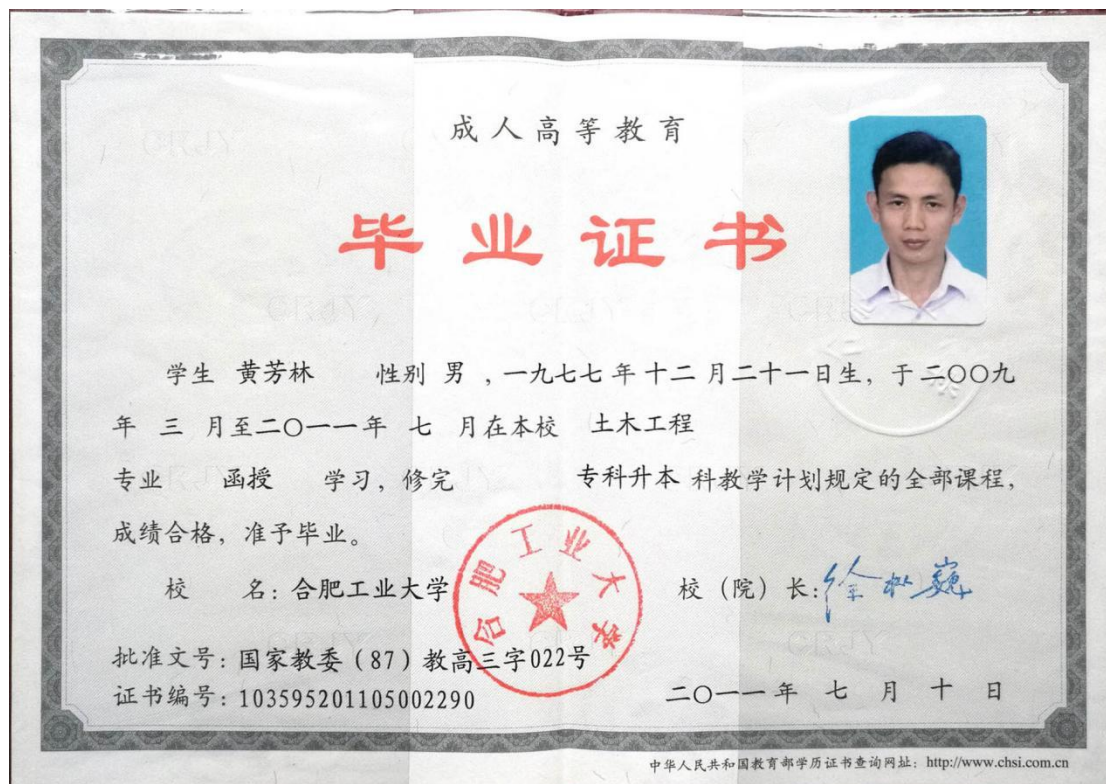 成人高等教育
毕业证书
学生 黄芳林 性别 男 ,一九七七年十二月二十一日生,于二〇〇九
年 三 月至二〇一一年 七 月在本校 土木工程
专业 函授 学习,修完 专科升本 科教学计划规定的全部课程,
成绩合格,准予毕业。
校 名:合肥工业大学
合肥工业大学
校(院)长:徐枞巍
批准文号:国家教委(87)教高三字022号
证书编号:103595201105002290
二〇一一年 七 月 十 日
中华人民共和国教育部学历证书查询网址:http://www.chsi.com.cn